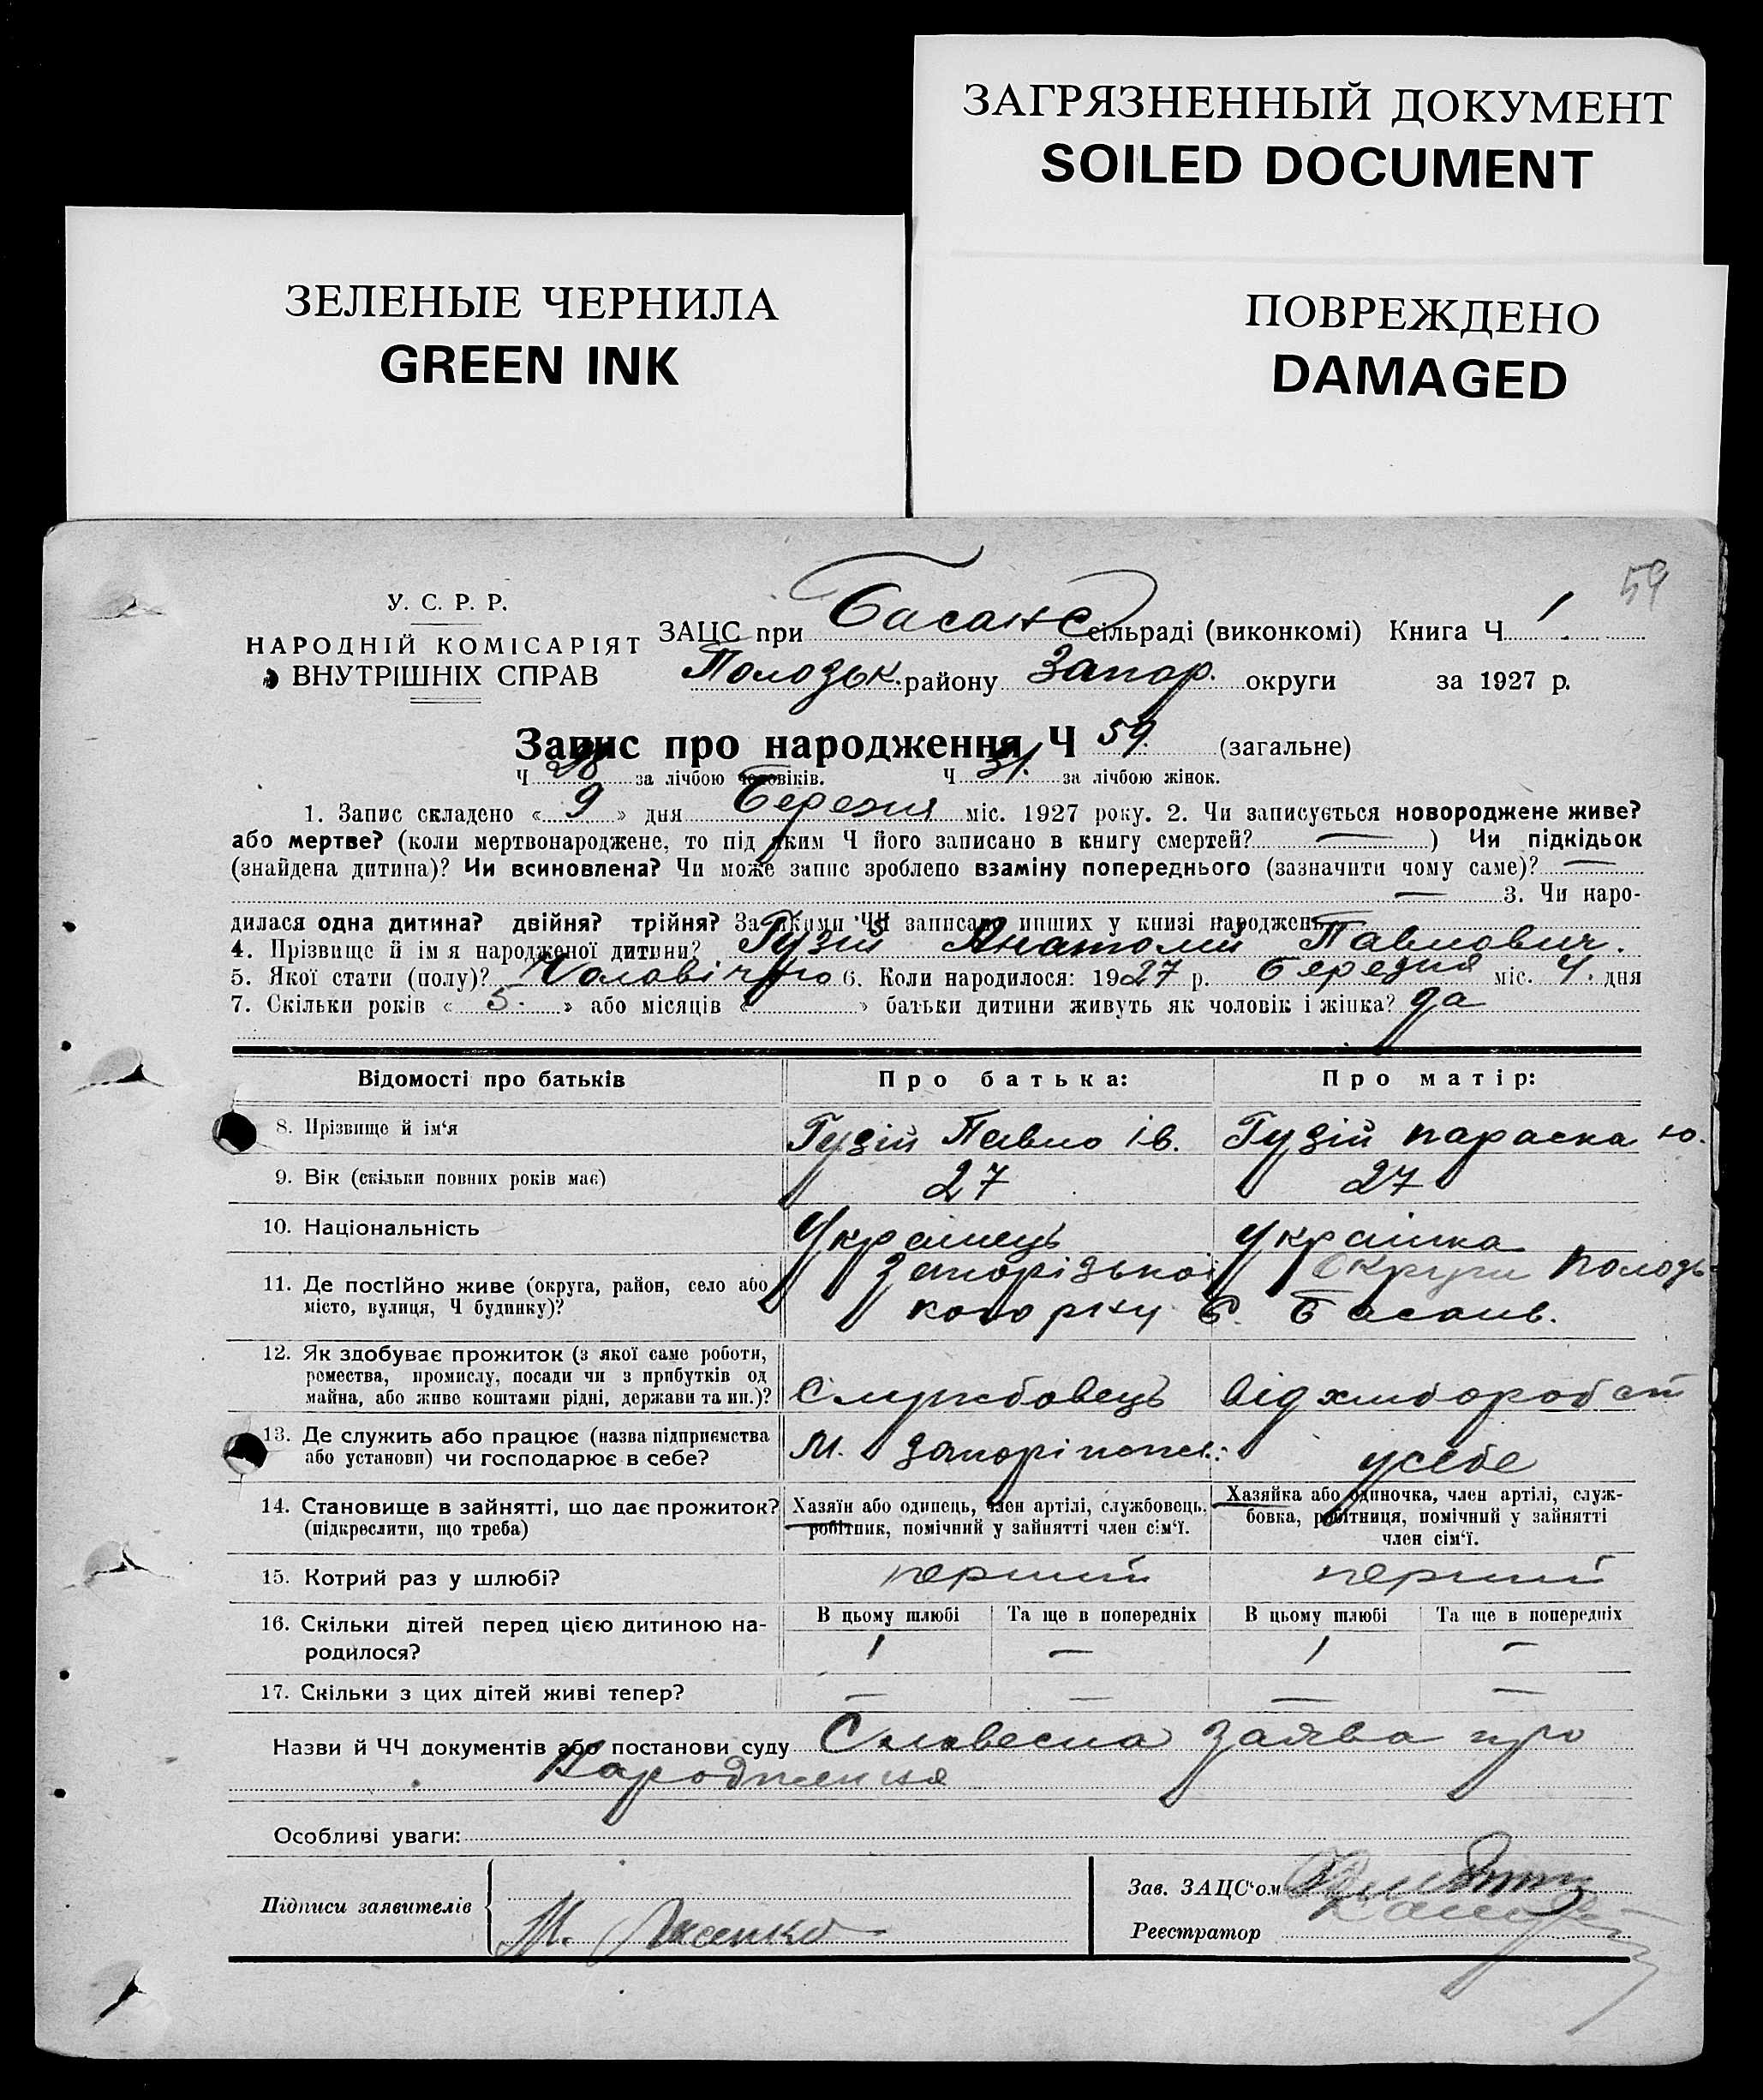 ЗАГРЯЗНЕННЫЙ ДОКУМЕНТ
SOILED DOCUMENT
ЗЕЛЕНЫЕ ЧЕРНИЛА
GREEN INK
ПОВРЕЖДЕНО
DAMAGED
59
У. С. Р. Р.
НАРОДНІЙ КОМІСАРІЯТ
ВНУТРІШНІХ СПРАВ
ЗАЦС при Басанс сільраді (виконкомі) Книга Ч 1
Полозьк. району Запор. округи за 1927 р.
Запис про народження Ч 59. (загальне)
Ч 28 за лічбою чоловіків. Ч 31. за лічбою жінок.
1. Запис складено « 9 » дня Березня міс. 1927 року. 2. Чи записується новороджене живе?
або мертве? (коли мертвонароджене, то під яким Ч його записано в книгу смертей? — ) Чи підкідьок
(знайдена дитина)? Чи всиновлена? Чи може запис зроблено взаміну попереднього (зазначити чому саме)? —
— 3. Чи наро-
дилася одна дитина? двійня? трійня? За якими ЧЧ записано инших у книзі народжень —
4. Прізвище й ім я народженої дитини? Гузій Анатолий Павлович.
5. Якої стати (полу)? Чоловічого 6. Коли народилося: 1927 р. Березня міс. 4. дня
7. Скільки років « 5. » або місяців « » батьки дитини живуть як чоловік і жінка? да
Відомості про батьків Про батька: Про матір:
8. Прізвище й ім‘я Гузій Павло Ів. Гузій параска ю.
9. Вік (скільки повних років має) 27 27
10. Національність Українець Українка
11. Де постійно живе (округа, район, село або Запорізької Округи Полозь-
місто, вулиця, Ч будинку)? кого р-ну С. Басань.
12. Як здобуває прожиток (з якої саме роботи,
ромества, промислу, посади чи з прибутків од
майна, або живе коштами рідні, держави та ин.)? Службовець від хлібороб ст
13. Де служить або працює (назва підприємства М.
або установи) чи господарює в себе? усебе
14. Становище в зайнятті, що дає прожиток? Хазяїн або одинець, член артілі, службовець, Хазяйка або одиночка, член артілі, служ-
(підкреслити, що треба) робітник, помічний у зайнятті член сім‘ї. бовка, робітниця, помічний у зайнятті
член сім‘ї.
15. Котрий раз у шлюбі? перший перший
16. Скільки дітей перед цією дитиною на- В цьому шлюбі Та ще в попередніх В цьому шлюбі Та ще в попередніх
родилося? 1 — 1 —
17. Скільки з цих дітей живі тепер? — — — —
Назви й ЧЧ документів або постанови суду Словесна заява про
Народження
Особливі уваги:
Підписи заявителів
М.
Зав. ЗАЦС‘ом
Реєстратор